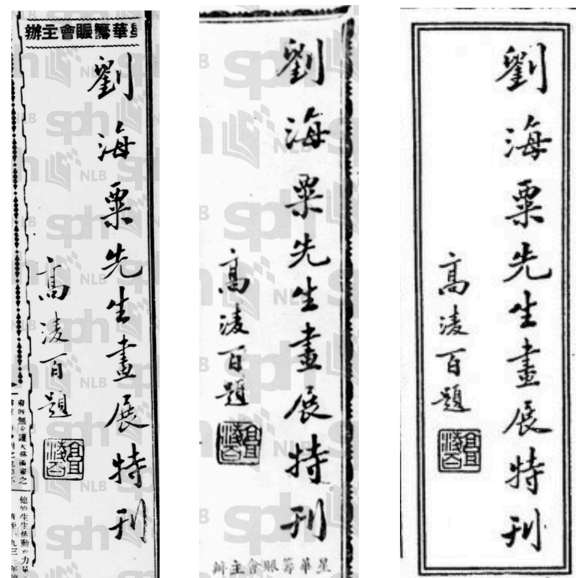 星華籌賑會主辦
劉海粟先生畫展特刊
高淩百題
劉海粟先生畫展特刊
高淩百題
星華籌賑會主辦
劉海粟先生畫展特刊
高淩百題
sph
NLB